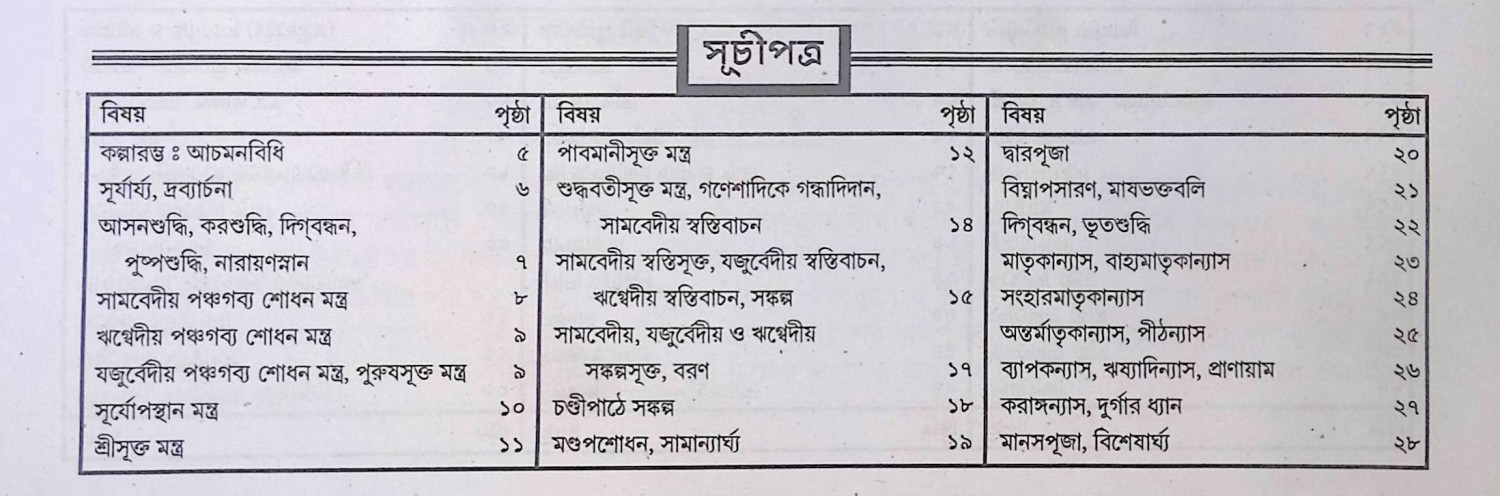 সূচীপত্র
বিষয় পৃষ্ঠা
কল্পারম্ভ ঃ আচমনবিধি ৫
সূর্যার্ঘ্য, দ্রব্যার্চনা ৬
আসনশুদ্ধি, করশুদ্ধি, দিগ্‌বন্ধন,
পুষ্পশুদ্ধি, নারায়ণস্নান ৭
সামবেদীয় পঞ্চগব্য শোধন মন্ত্র ৮
ঋগ্বেদীয় পঞ্চগব্য শোধন মন্ত্র ৯
যজুর্বেদীয় পঞ্চগব্য শোধন মন্ত্র, পুরুষসূক্ত মন্ত্র ৯
সূর্যোপস্থান মন্ত্র ১০
শ্রীসূক্ত মন্ত্র ১১
বিষয় পৃষ্ঠা
পাবমানীসূক্ত মন্ত্র ১২
শুদ্ধবতীসূক্ত মন্ত্র, গণেশাদিকে গন্ধাদিদান,
সামবেদীয় স্বস্তিবাচন ১৪
সামবেদীয় স্বস্তিসূক্ত, যজুর্বেদীয় স্বস্তিবাচন,
ঋগ্বেদীয় স্বস্তিবাচন, সঙ্কল্প ১৫
সামবেদীয়, যজুর্বেদীয় ও ঋগ্বেদীয়
সঙ্কল্পসূক্ত, বরণ ১৭
চণ্ডীপাঠে সঙ্কল্প ১৮
মণ্ডপশোধন, সামান্যার্ঘ্য ১৯
বিষয় পৃষ্ঠা
দ্বারপূজা ২০
বিঘ্নাপসারণ, মাষভক্তবলি ২১
দিগ্‌বন্ধন, ভূতশুদ্ধি ২২
মাতৃকান্যাস, বাহ্যমাতৃকান্যাস ২৩
সংহারমাতৃকান্যাস ২৪
অন্তর্মাতৃকান্যাস, পীঠন্যাস ২৫
ব্যাপকন্যাস, ঋষ্যাদিন্যাস, প্রাণায়াম ২৬
করাঙ্গন্যাস, দুর্গার ধ্যান ২৭
মানসপূজা, বিশেষার্ঘ্য ২৮